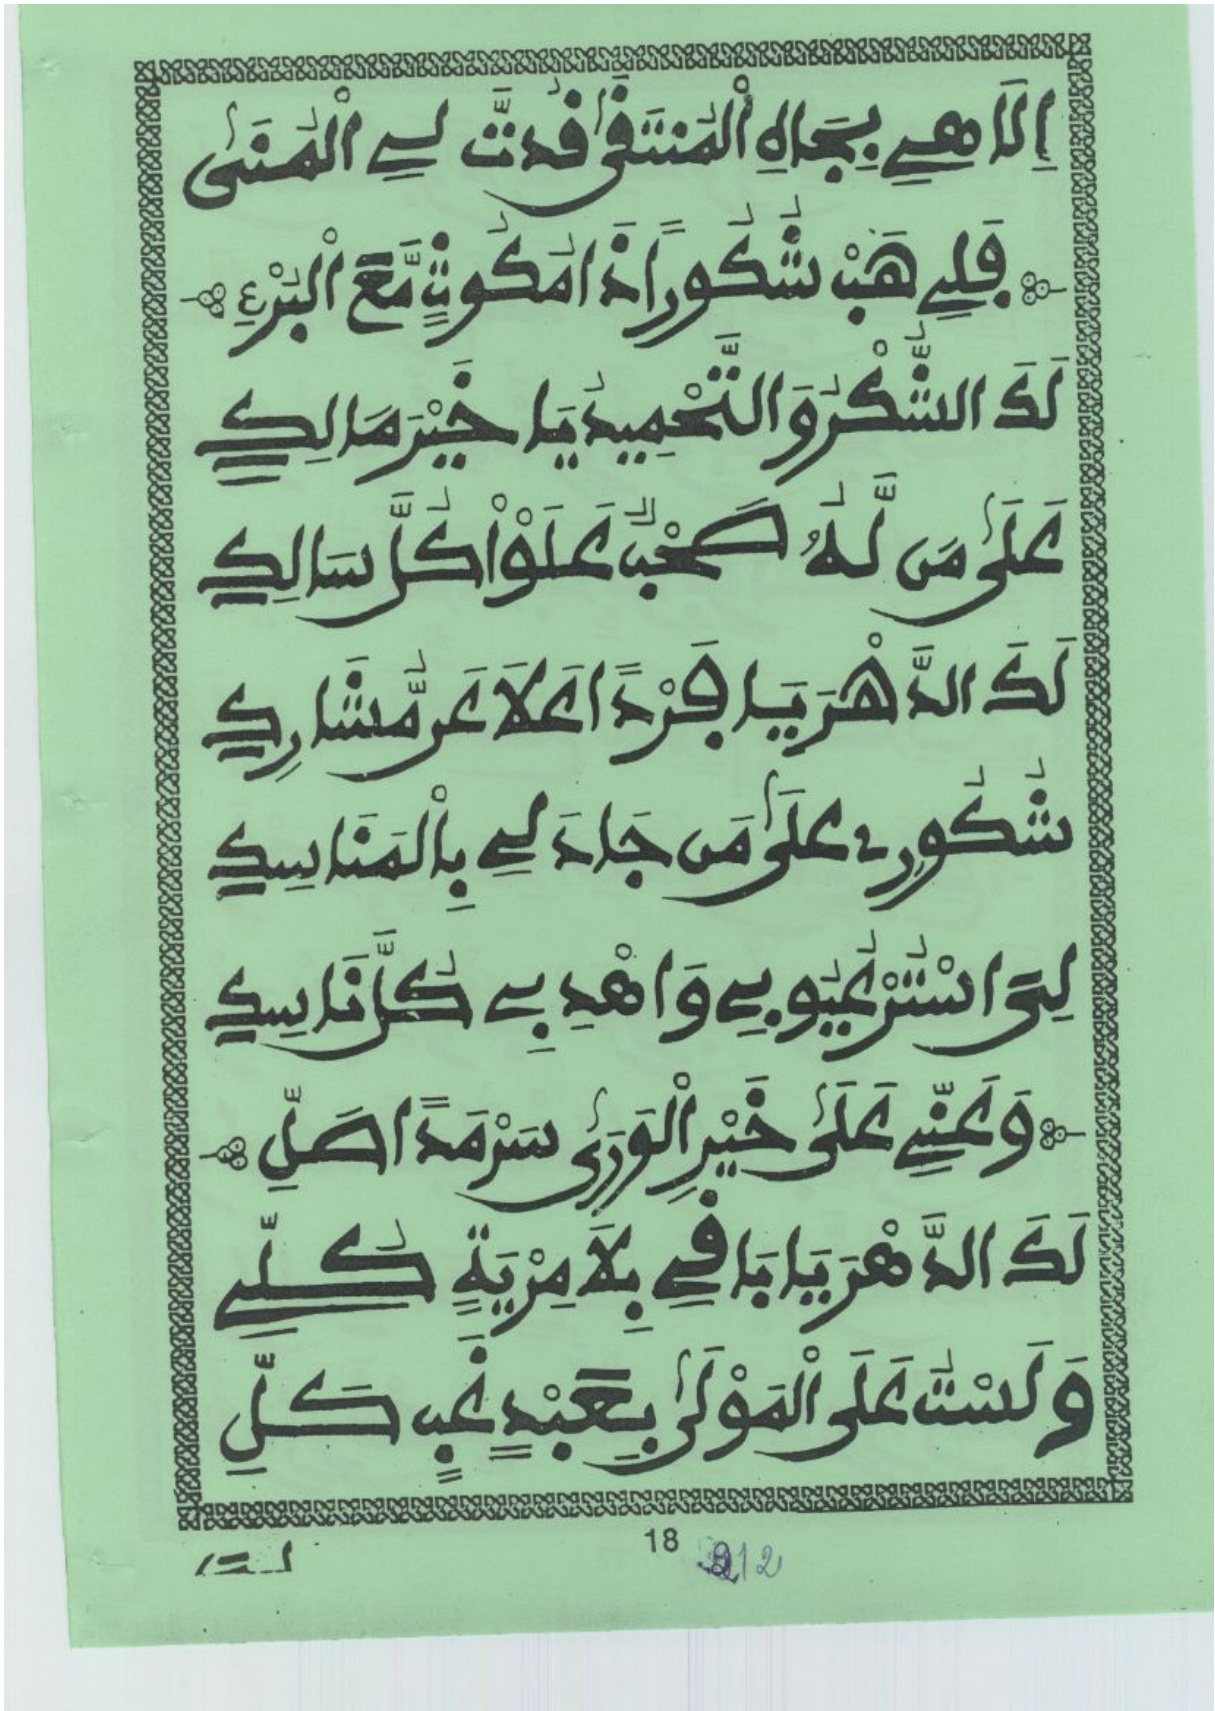 إِلَاهِي بِجَاهِ الْمُنتَقَىٰ قُدتَّ لِي الْمُنَىٰ
فَلِي هَبْ شُكُوراً ذَا مُكُوثٍ مَّعَ الْبَرْءِ
لَكَ الشُّكْرُ وَالتَّحْمِيدُ يَا خَيْرَ مَالِكِ
عَلَىٰ مَن لَّهُ صَحْبٌ عَلَوْاْ كُلَّ سَالِكِ
لَكَ الدَّهْرَ يَا فَرْداً عَلَا عَن مُّشَارِكِ
شُكُورِي عَلَىٰ مَن جَادَ لِي بِالْمَنَاسِكِ
لِيَ اسْتُرْ عُيُوبِي وَاهْدِ بِي كُلَّ نَاسِكِ
وَعَنِّي عَلَىٰ خَيْرِ الْوَرَىٰ سَرْمَداً صَلِّ
لَكَ الدَّهْرَ يَا بَاقِي بِلَا مِرْيَةٍ كُلِّي
وَلَسْتُ عَلَى الْمَوْلَىٰ بِعَبْدٍ غَبٍ كَلِّ
18
212